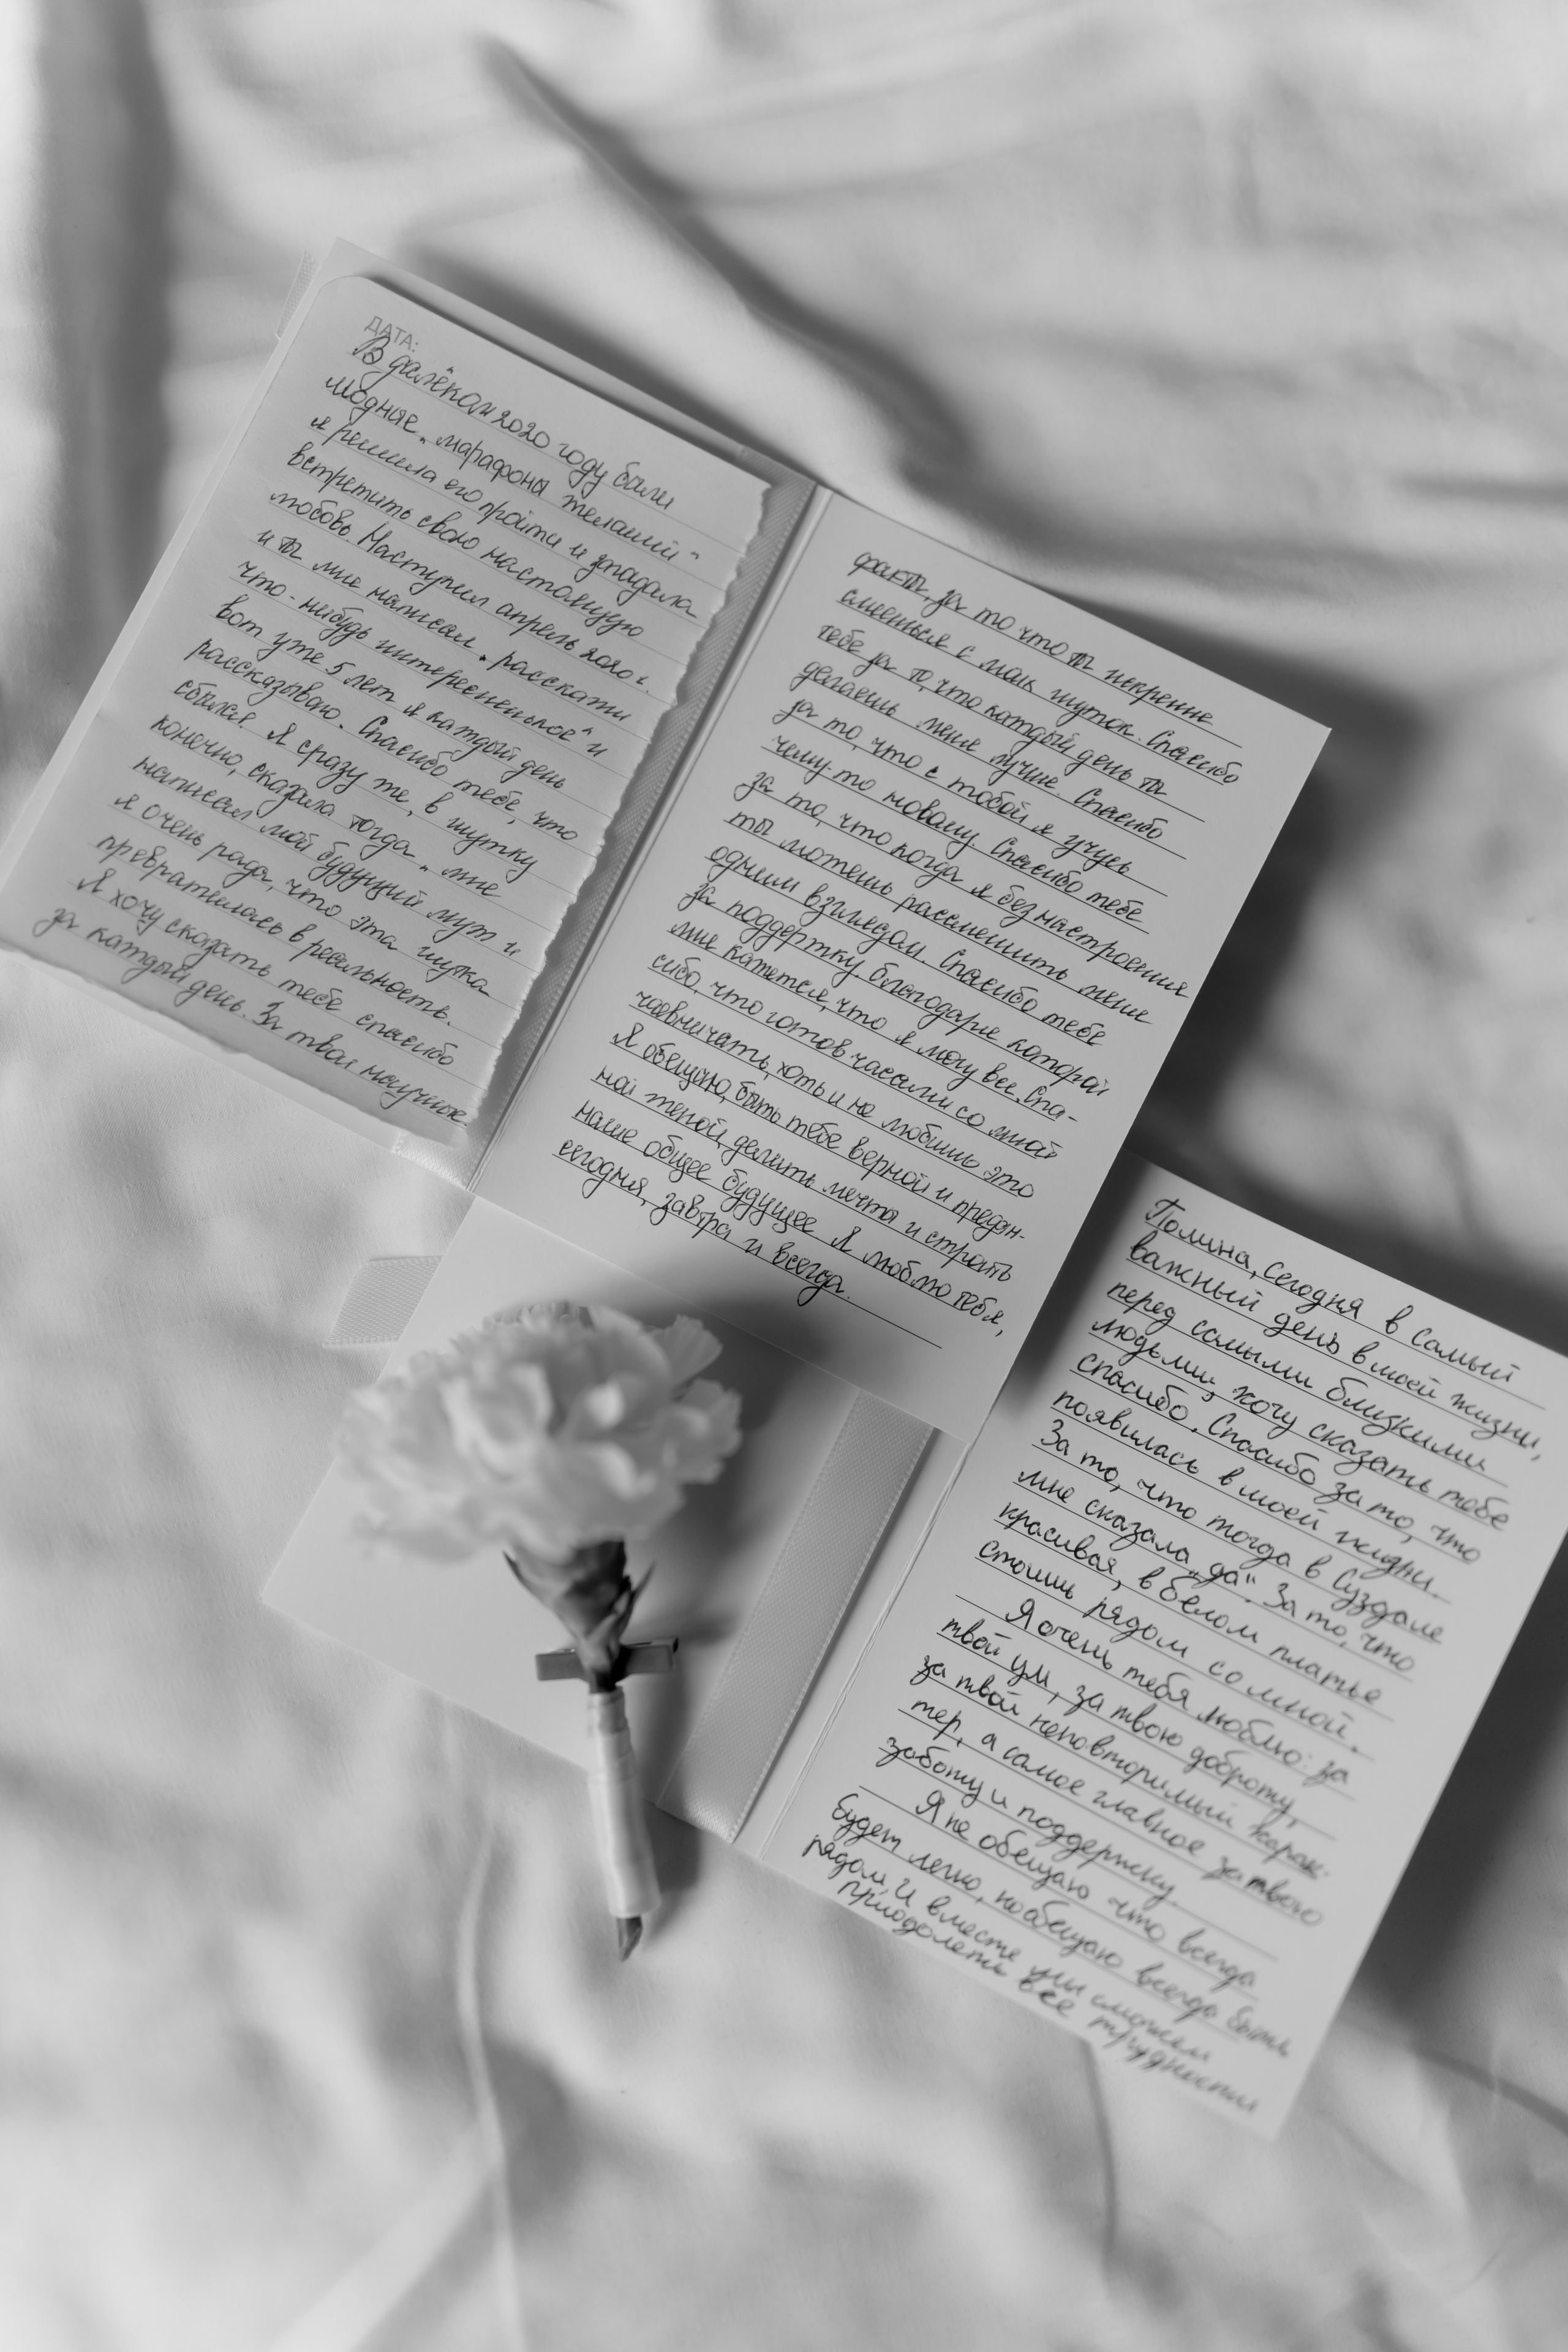 ДАТА:
В далёком 2020 году были
модные „марафоны желаний"
я решила его пройти и загадала
встретить свою настоящую
любовь. Наступил апрель 2020 г.
и ты мне написал „расскажи
что-нибудь интересненькое" и
вот уже 5 лет я каждый день
рассказываю. Спасибо тебе, что
сбылся. Я сразу же, в шутку
конечно, сказала тогда „мне
написал мой будущий муж и
я очень рада, что эта шутка
превратилась в реальность.
Я хочу сказать тебе спасибо
за каждый день. За твои научные
факты, за то что ты искренне
смеешься с моих шуток. Спасибо
тебе за то, что каждый день ты
делаешь меня лучше. Спасибо
за то, что с тобой я учусь
чему-то новому. Спасибо тебе
за то, что когда я без настроения
ты можешь рассмешить меня
одним взглядом. Спасибо тебе
за поддержку, благодаря которой
мне кажется, что я могу все. Спа-
сибо, что готов часами со мной
чаевничать, хоть и не любишь это
Я обещаю, быть тебе верной и предан-
ной женой, делить мечты и строить
наше общее будущее. Я люблю тебя,
сегодня, завтра и всегда.
Полина, сегодня в самый
важный день в моей жизни,
перед самыми близкими
людьми, хочу сказать тебе
спасибо. Спасибо за то, что
появилась в моей жизни.
За то, что тогда в Суздале
мне сказала „да". За то, что
красивая, в белом платье
стоишь рядом со мной.
Я очень тебя люблю: за
твой ум, за твою доброту,
за твой неповторимый харак-
тер, а самое главное за твою
заботу и поддержку.
Я не обещаю что всегда
будет легко, но обещаю всегда быть
рядом. И вместе мы сможем
приодолеть все трудности